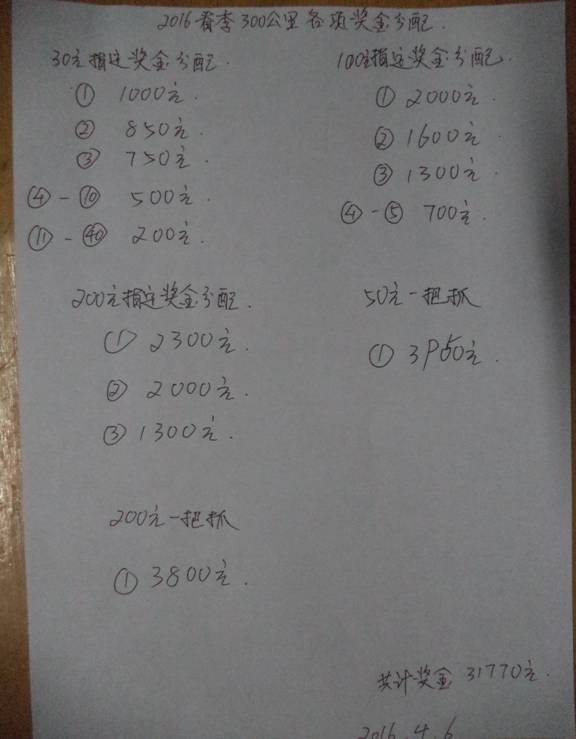 2016春季300公里各项奖金分配.
30元指定奖金分配.
① 1000元.
② 850元.
③ 750元.
④-⑩ 500元.
⑪-㊵ 200元.
100元指定奖金分配.
① 2000元.
② 1600元.
③ 1300元.
④-⑤ 700元.
200元指定奖金分配.
① 2300元.
② 2000元.
③ 1300元.
50元一把抓
①
200元一把抓
① 3800元.
共计奖金 31770元.
2016.4.6